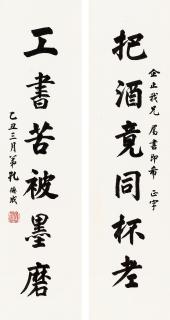 把酒竟同杯老
企止我兄 属書即希 正字
工書苦被墨磨
己丑三月弟孔德成